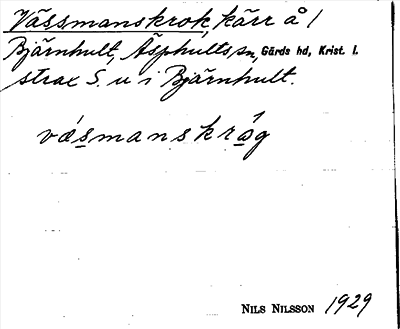 Vässmanskrok, kärr å 1
Bjärnhult, Äsphults sn, Gärds hd, Krist. l.
strax S. u i Bjärnhult.
väsmanskråg
NILS NILSSON 1929